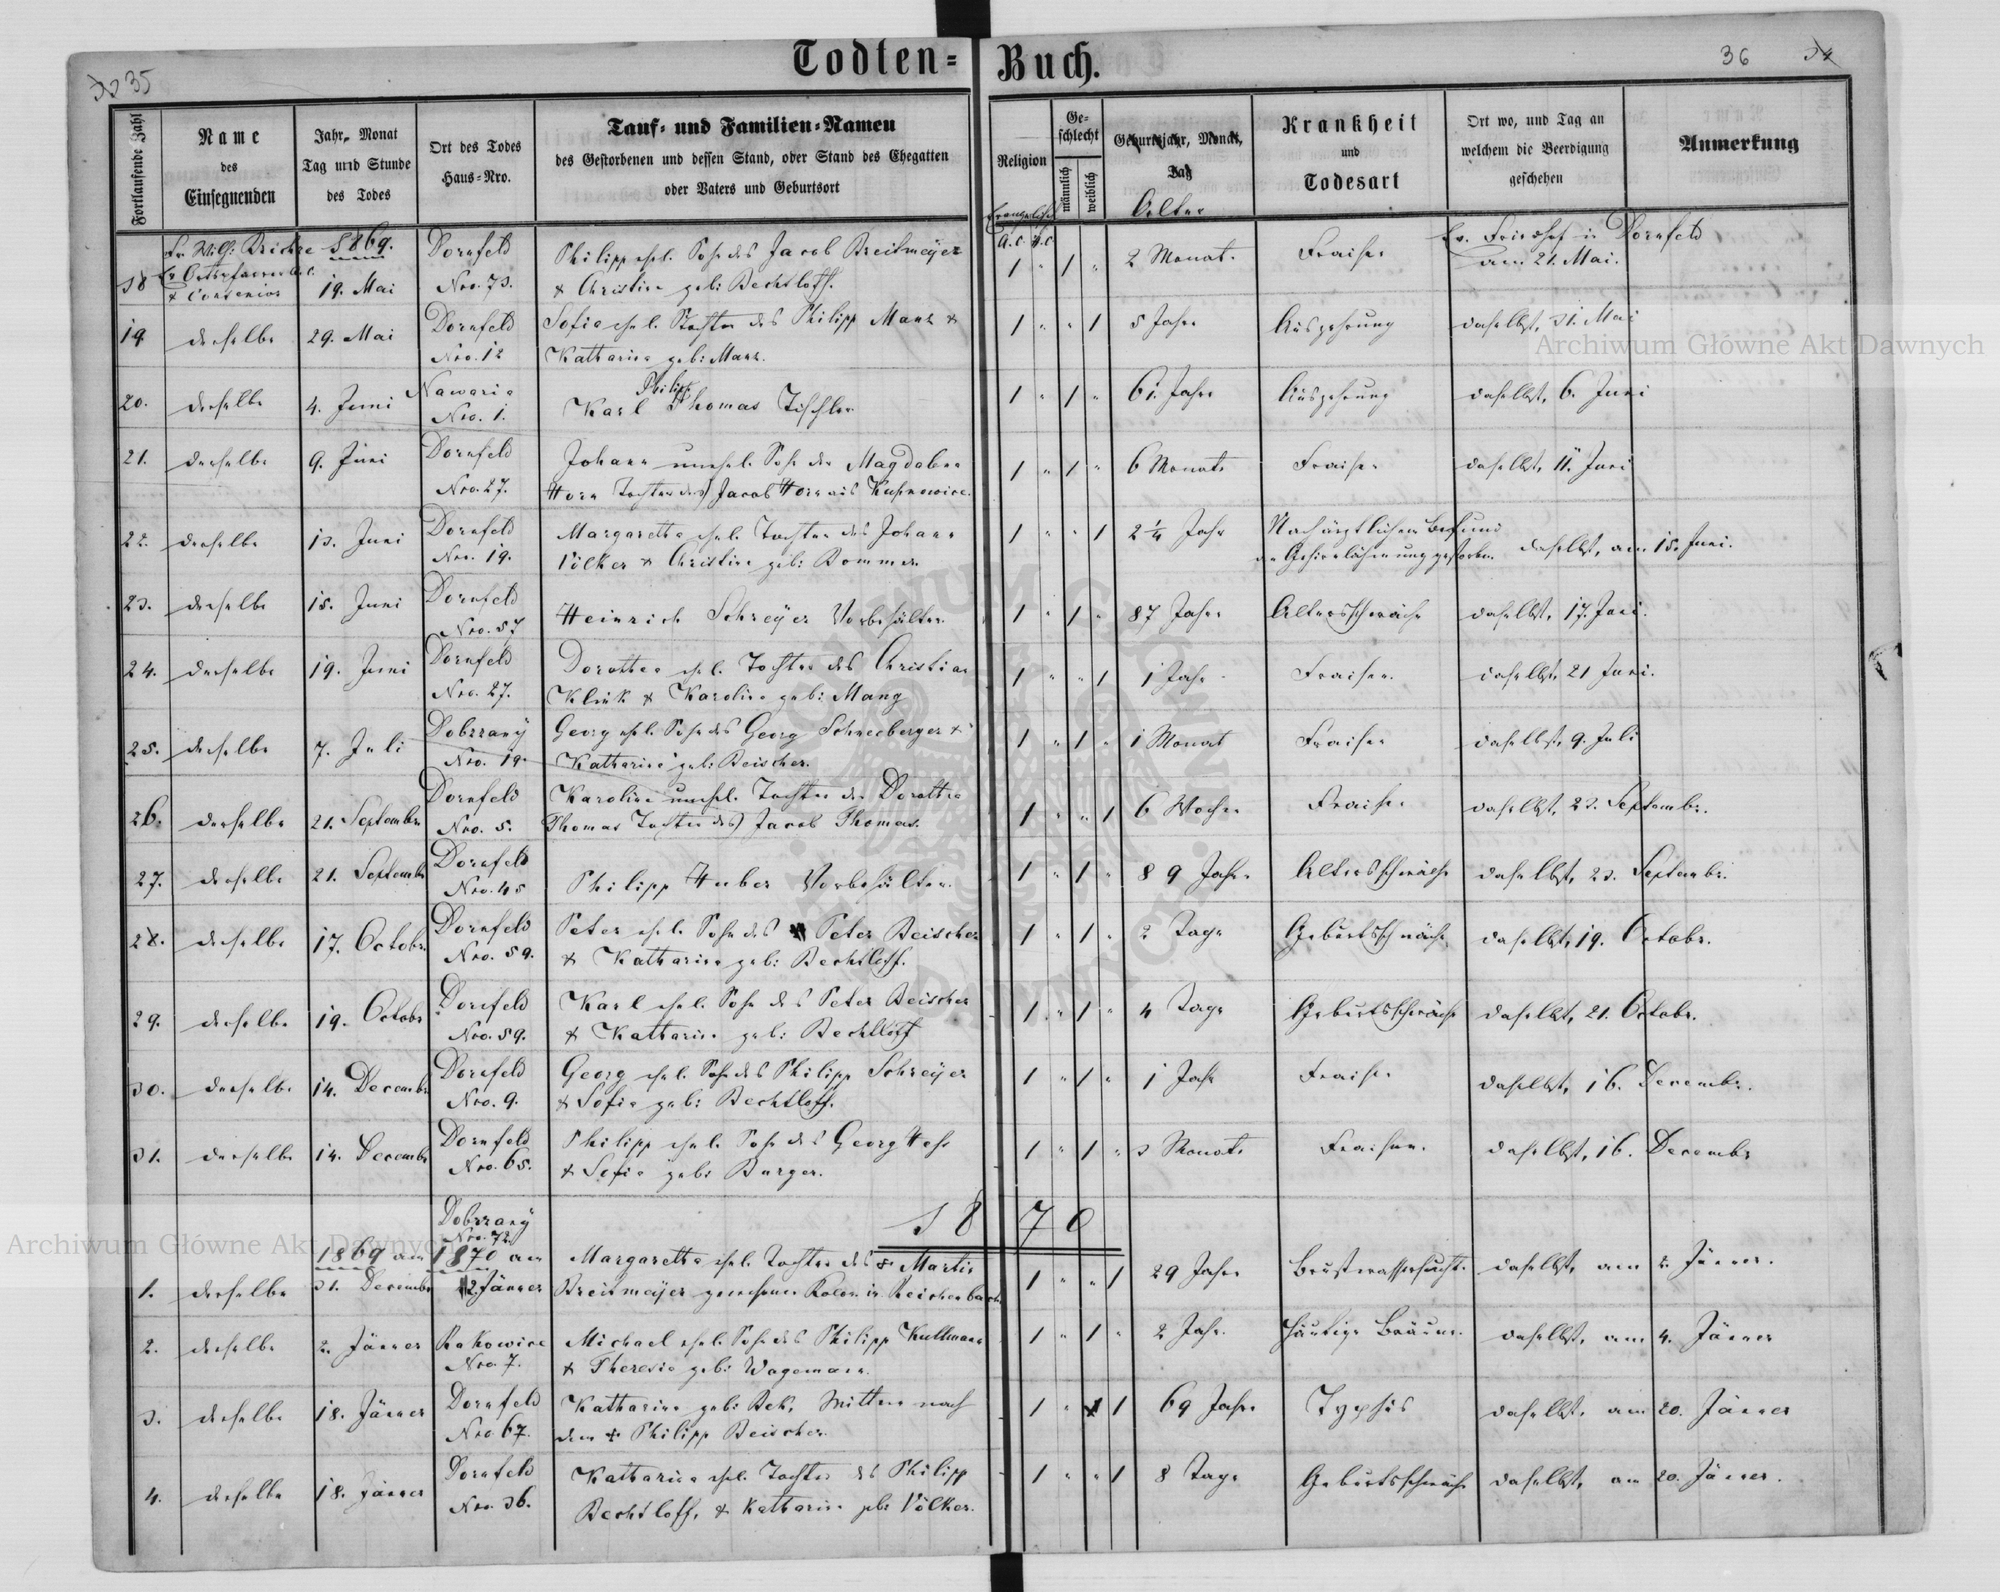 Todten-Buch.
35
36 34
Fortlaufende Zahl
Name des Einsegnenden
Jahr, Monat Tag und Stunde des Todes
Ort des Todes Haus-Nro.
Tauf- und Familien-Namen
des Gestorbenen und dessen Stand, oder Stand des Ehegatten
oder Vaters und Geburtsort
Religion
Evangelisch
A.C. H.C.
Geschlecht
männlich
weiblich
Geburtsjahr, Monat, Tag
Alter
Krankheit und Todesart
Ort wo, und Tag an welchem die Beerdigung geschehen
Anmerkung
1869. Dornfeld Philipp ehel. Sohn des Jacob Breitmeÿer 2 Monat. Fraisen Ev. Friedhof in Dornfeld
18 19. Mai Nro. 73. & Christine geb: Bechtloff. 1 " 1 " am 21. Mai.
19 derselbe 29. Mai Dornfeld Sofie ehel. Tochter des Philipp Manz & 1 " " 1 5 Jahre Auszehrung daselbst, 31. Mai
Nro. 12 Katharina geb: Manz.
20. derselbe 4. Juni Nawaria Philipp
Nro. 1. Karl Thomas Tischler 1 " 1 " 61. Jahre Auszehrung daselbst, 6. Juni
21. derselbe 9. Juni Dornfeld Johann unehel. Sohn der Magdalena 1 " 1 " 6 Monate Fraisen daselbst, 11. Juni
Nro. 27. Horn Tochter des Jacob Horn aus Kuhnowice.
22. derselbe 13. Juni Dornfeld Margaretha ehel. Tochter des Johann 1 " " 1 2 1/4 Jahr Nach ärztlichem Befund
Nro. 19. Völker & Christine geb: Rommer an Gehirnlähmung gestorben daselbst, am 15. Juni.
23. derselbe 15. Juni Dornfeld
Nro. 57 Heinrich Schreÿer Vorbehälter. 1 " 1 " 87 Jahre Altersschwäche daselbst, 17. Juni.
24. derselbe 19. Juni Dornfeld Dorothea ehel. Tochter des Christian 1 " " 1 1 Jahr Fraisen. daselbst, 21 Juni.
Nro. 27. Klink & Karoline geb: Mang
25. derselbe 7. Juli Dobrzanÿ Georg ehel. Sohn des Georg Schneeberger & 1 " 1 " 1 Monat Fraisen daselbst, 9. Juli
Nro. 19. Katharina geb: Reischer.
26. derselbe 21. September Dornfeld Karoline unehel. Tochter der Dorothea 1 " " 1 6 Wochen Fraisen daselbst, 23. Septembr.
Nro. 5. Thomas Tochter des Jacob Thomas.
27. derselbe 21. Septembr Dornfeld
Nro. 45 Philipp Huber Vorbehälter. 1 " 1 " 89 Jahre Altersschwäche daselbst, 23. Septembr.
28. derselbe 17. Octobr. Dornfeld Peter ehel. Sohn des Peter Reischer 1 " 1 " 2 Tage Geburtsschwäche daselbst, 19. Octobr.
Nro. 59. & Katharina geb: Bechtloff.
29. derselbe 19. Octobr Dornfeld Karl ehel. Sohn des Peter Reischer 1 " 1 " 4 Tage Geburtsschwäche daselbst, 21. Octobr.
Nro. 59. & Katharina geb: Bechtloff
30. derselbe 14. Decembr Dornfeld Georg ehel. Sohn des Philipp Schreÿer 1 " 1 " 1 Jahr Fraisen daselbst, 16. Decembr.
Nro. 9. & Sofie geb: Bechtloff.
31. derselbe 14. Decembr Dornfeld Philipp ehel. Sohn des Georg Hehr 1 " 1 " 3 Monate Fraisen. daselbst, 16. Decembr
Nro. 65. & Sofie geb: Burger.
1870
Dobrzanÿ
Nro. 72
1869 am 1870 am Margaretha ehel. Tochter des Martin
1. derselbe 31. Decembr 2. Jänner Breitmeÿer gewesenen Kolon. in Reichenbach 1 " " 1 29 Jahre Brustwassersucht daselbst, am 2. Jänner.
2. derselbe 2. Jänner Rakowice Michael ehel. Sohn des Philipp Kullmann 1 " 1 " 2 Jahr. Häutige Bräune. daselbst, am 4. Jänner
Nro. 7. & Theresia geb: Wagemann.
3. derselbe 18. Jänner Dornfeld Katharina geb: Bek, Wittwe nach 1 " 1 69 Jahre Typhus daselbst, am 20. Jänner
Nro. 67. dem Philipp Reischer.
4. derselbe 18. Jänner Dornfeld Katharina ehel. Tochter des Philipp 1 " " 1 8 Tage Geburtsschwäche daselbst, am 20. Jänner.
Nro. 36. Bechtloff, & Katharina geb: Völker.
Archiwum Główne Akt Dawnych
Archiwum Główne Akt Dawnych